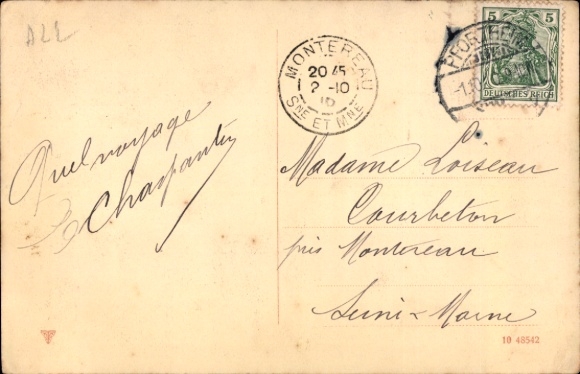 ALL
MONTEREAU
20 45
2 -10
10
SNE ET MNE
5 5
DEUTSCHES REICH
PFORZHEIM
Quel voyage
Charpantier
Madame Loiseau
Courbeton
près Montereau
Seine & Marne
10 48542